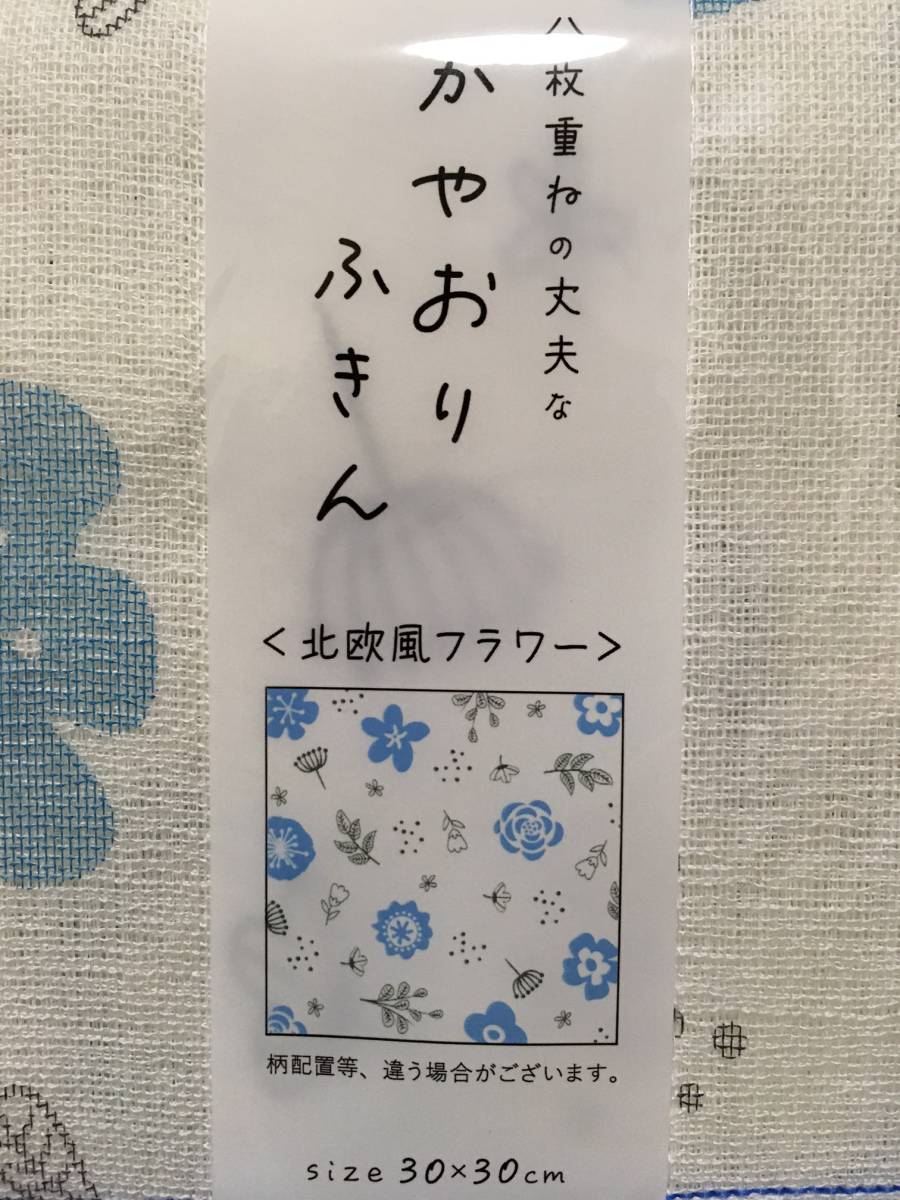 八枚重ねの丈夫な
かやおり
ふきん
<北欧風フラワー>
柄配置等、違う場合がございます。
size 30×30cm